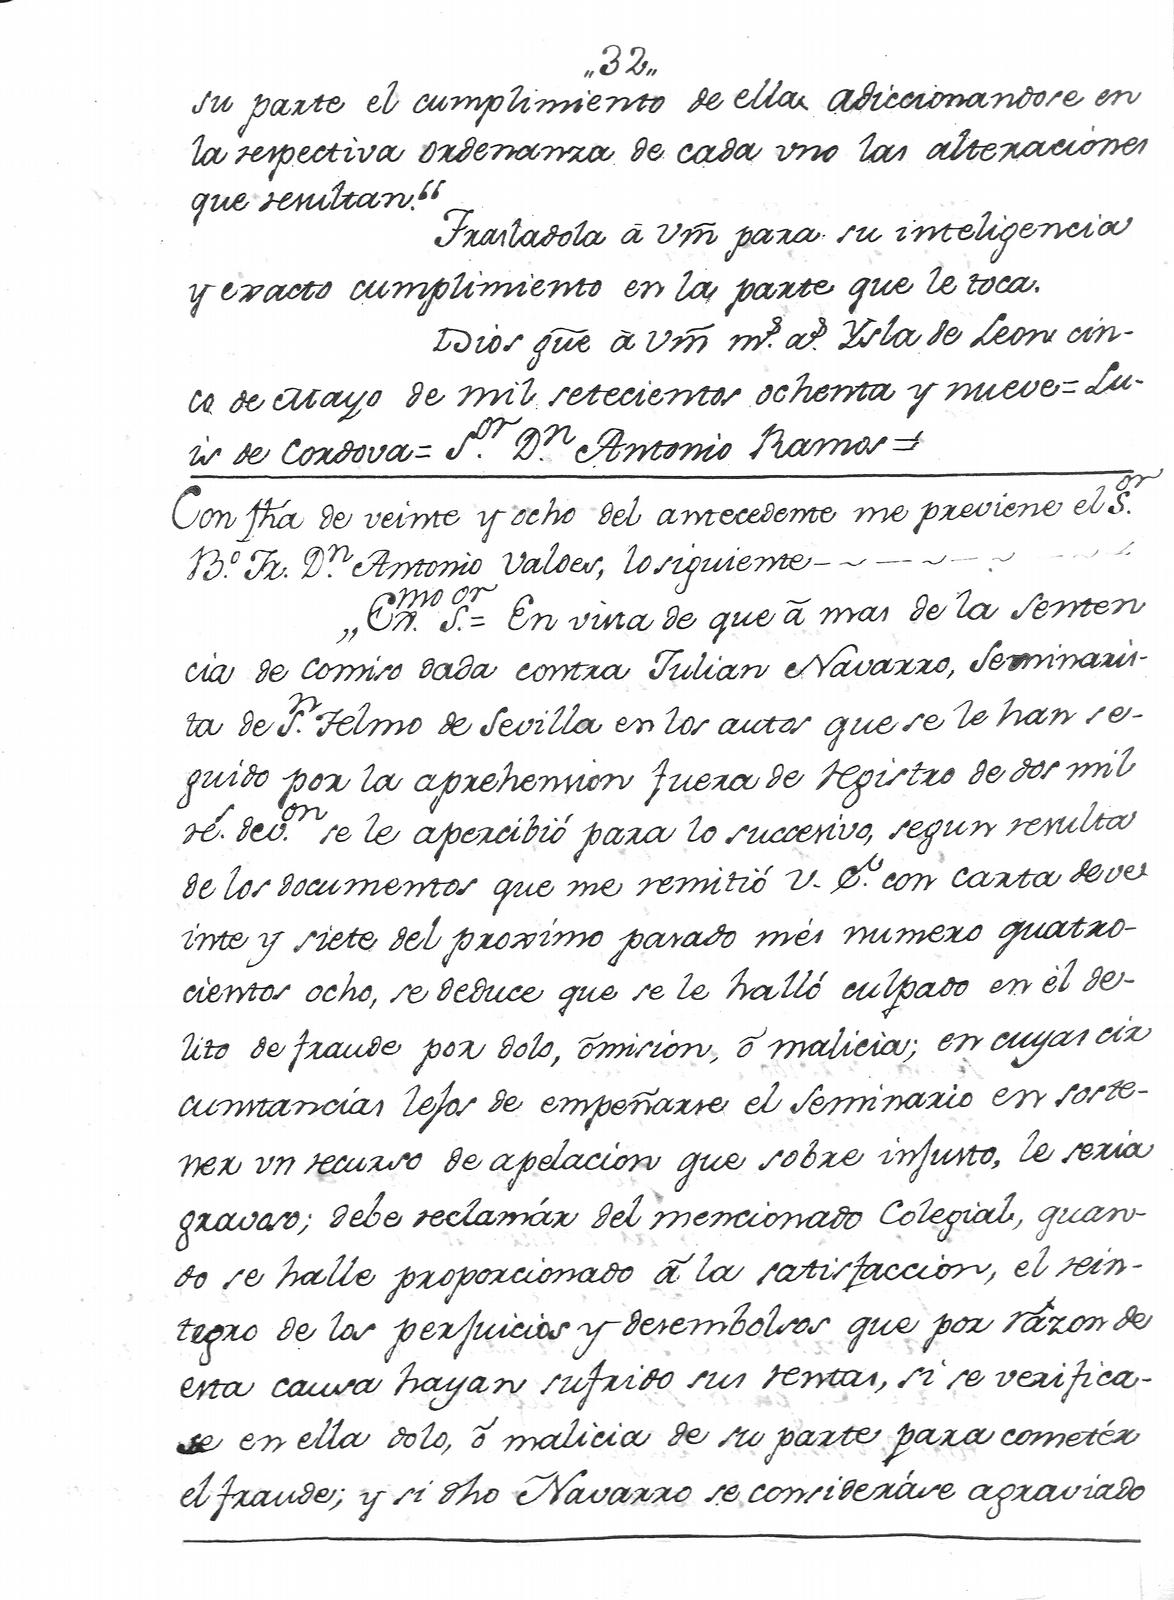 „32„
su parte el cumplimiento de ella adiccionandose en
la respectiva ordenanza de cada vno las alteraciónes
que resultan.“
Trasladola ã Vm̃ para su inteligencia
y exacto cumplimiento en la parte que le toca.
Dios gũe ã Vm̃ m.s a.s Ysla de Leon cin-
co de Mayo de mil setecientos ochenta y nueve= Lu-
is de Cordova= S.or D.n Antonio Ramos=
Con fha de veinte y ocho del antecedente me previene el S.or
B.o Fr. D.n Antonio Valdes, lo siguiente
„Ex.mo S.or= En vista de que ã mas de la senten
cia de comiso dada contra Julian Navarro, Seminaris-
ta de S.n Telmo de Sevilla en los autos que se le han se-
guido por la aprehension fuera de registro de dos mil
r.s de v.on se le apercibió para lo succesivo, segun resulta
de los documentos que me remitió V. E.a con carta de ve
inte y siete del proxímo pasado més numero quatro-
cientos ocho, se deduce que se le halló culpado en el de-
lito de fraude por dolo, õmision, õ malicia; en cuyas cir
cunstancías lejos de empeñarse el Seminario en soste-
ner vn recurso de apelacion que sobre injusto, le seria
gravoso; debe reclamár del mencionado Colegial, quan-
do se halle proporcionado ã la satisfaccion, el rein-
tegro de los perjuicios y desembolsos que por rázon de
esta causa hayan sufrido sus rentas, si se verifica-
se en ella dolo, õ malicia de su parte para cometér
el fraude; y si dho Navarro se consideráse agraviado